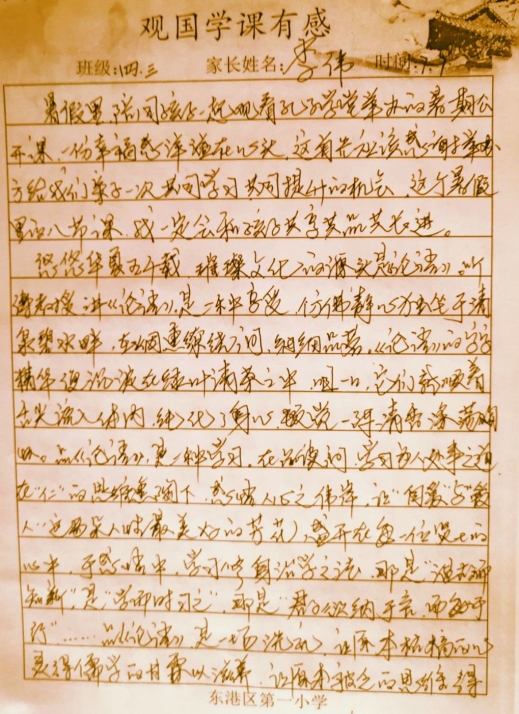 观国学课有感
班级:四.三 家长姓名:李伟 时间:7.9
暑假里,陪同孩子一起观看孔子学堂举办的暑期公
开课,一份幸福感洋溢在心头,这首先应该感谢举办
方给我们亲子一次共同学习共同提升的机会,这个暑假
里的八节课,我一定会和孩子共享共品共长进。
悠悠华夏五千载,璀璨文化的源头是《论语》。听
老师授讲《论语》,是一种享受,仿佛静心于清
泉碧水畔,在烟熏缭绕之间,细细品茗,《论语》的字字
精华浸泡在绿叶清茶之中,呷一口,它们就顺着
舌尖流入体内,纯化了身心,顿觉一阵清香涤荡
。品《论语》,是一种学习,在品读间,学习为人处事之道
在“仁”的思维熏陶下,感悟人心之伟岸,让“自爱”与“爱
人”这两朵人时最美好的芳花,盛开在每一位贤士的
心中,于感悟中,学习修身治学之法,那是“温故而
知新”,是“学而时习之”,那是“君子欲纳于言,而敏于
行”……品《论语》,是一场洗礼,让原本枯槁的心
灵得儒学的甘露以滋养,让原本疲乏的思维得
东港区第一小学